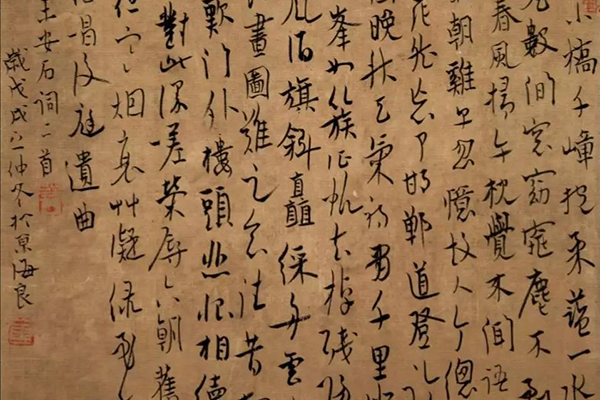 小橋千嶂抱柔藍一水
數間窓窈窕塵不到
春風掃午枕覺來聞語
朝雞早忽憶故人今總
茫然忘了邯鄲道登臨
晚秋天氣初肅千里
峯如簇征帆去棹殘陽
風酒旗斜矗綵舟雲
畫圖難足念往昔
歎門外樓頭悲恨相續
對此漫嗟榮辱六朝舊
但寒烟衰艸凝綠至
唱後庭遺曲
王安石詞二首
歲戊戌之仲冬於京海良